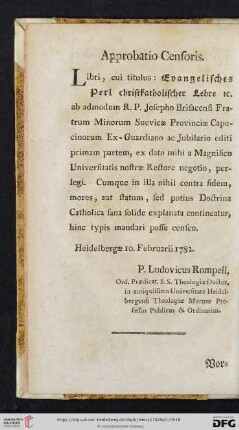 Approbatio Censoris.
Libri, cui titulus: Evangelisches
Perl christkatholischer Lehre ꝛc.
ab admodum R. P. Josepho Brisacensi Fra-
trum Minorum Suevicæ Provinciæ Capu-
cinorum Ex-Guardiano ac Jubilario editi
primam partem, ex dato mihi a Magnifico
Universitatis nostræ Rectore negotio, per-
legi. Cumque in illa nihil contra fidem,
mores, aut statum, sed potius Doctrina
Catholica sana solide explanata contineatur,
hinc typis mandari posse censeo.
Heidelbergæ 10. Februarii 1782.
P. Ludovicus Rompell,
Ord. Prædicat. S. S. Theologiæ Doctor,
in antiquissima Universitate Heidel-
bergensi Theologiæ Morum Pro-
fessor Publicus & Ordinarius.
Vor-
DFG